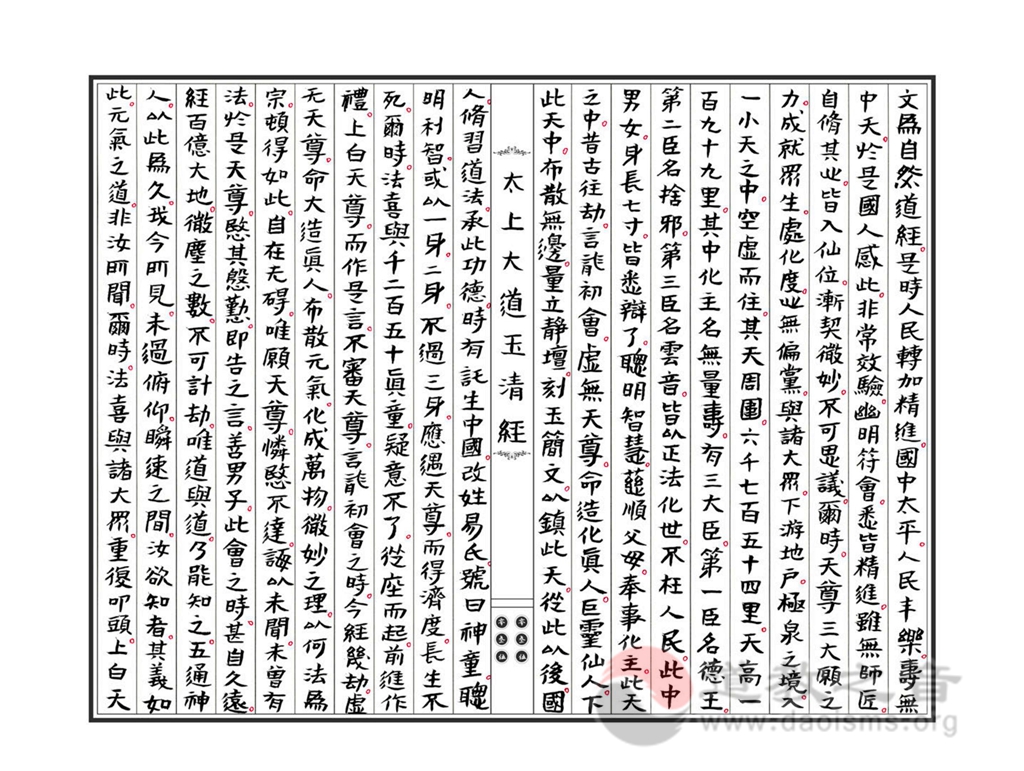 文為自然道經是時人民轉加精進國中太平人民丰樂壽無
中天於是國人感此非常效驗幽明符會悉皆精進雖無師匠
自脩其心皆入仙位漸契微妙不可思議爾時天尊三大願之
力成就眾生處化度心無偏黨與諸大眾下游地戶極泉之境入
一小天之中空虛而住其天周圍六千七百五十四里天高一
百九十九里其中化主名無量壽有三大臣第一臣名德王
第二臣名捨邪第三臣名雲音皆以正法化世不枉人民此中
男女身長七寸皆悉辯了聰明智慧慈順父母奉事化主此天
之中昔古往劫言龍初會虛無天尊命造化真人巨靈仙人下
此天中布散無邊量立靜壇刻玉簡文以鎮此天從此以後國
太上大道玉清經
人脩習道法承此功德時有託生中國改姓易氏號曰神童聰
明利智或以一身二身不過三身應遇天尊而得濟度長生不
死爾時法喜與千二百五十真童疑意不了從座而起前進作
禮上白天尊而作是言不審天尊言龍初會之時今經幾劫虛
无天尊命大造真人布散元氣化成萬物微妙之理以何法為
宗頓得如此自在无碍唯願天尊憐愍不達誨以未聞未曾有
法於是天尊愍其慇懃即告之言善男子此會之時甚自久遠
經百億大地微塵之數不可計劫唯道與道乃能知之五通神
人以此為久我今所見未過俯仰瞬速之間汝欲知者其義如
此元氣之道非汝所聞爾時法喜與諸大眾重復叩頭上白天
道教之音
www.daoisms.org